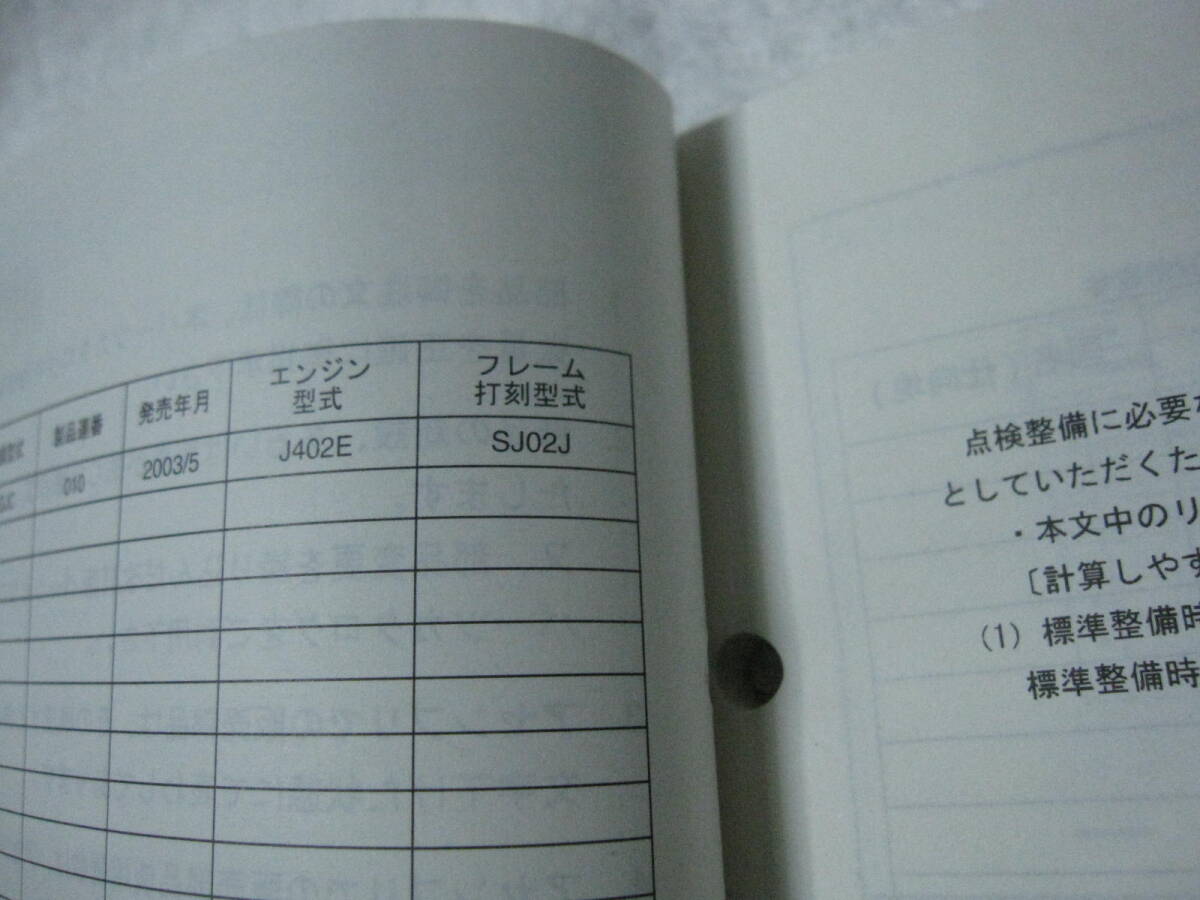 製品連番
発売年月
エンジン
型式
フレーム
打刻型式
010
2003/5
J402E
SJ02J
点検整備に必要
としていただくた
・本文中のリ
〔計算しやす
(1) 標準整備時
標準整備時